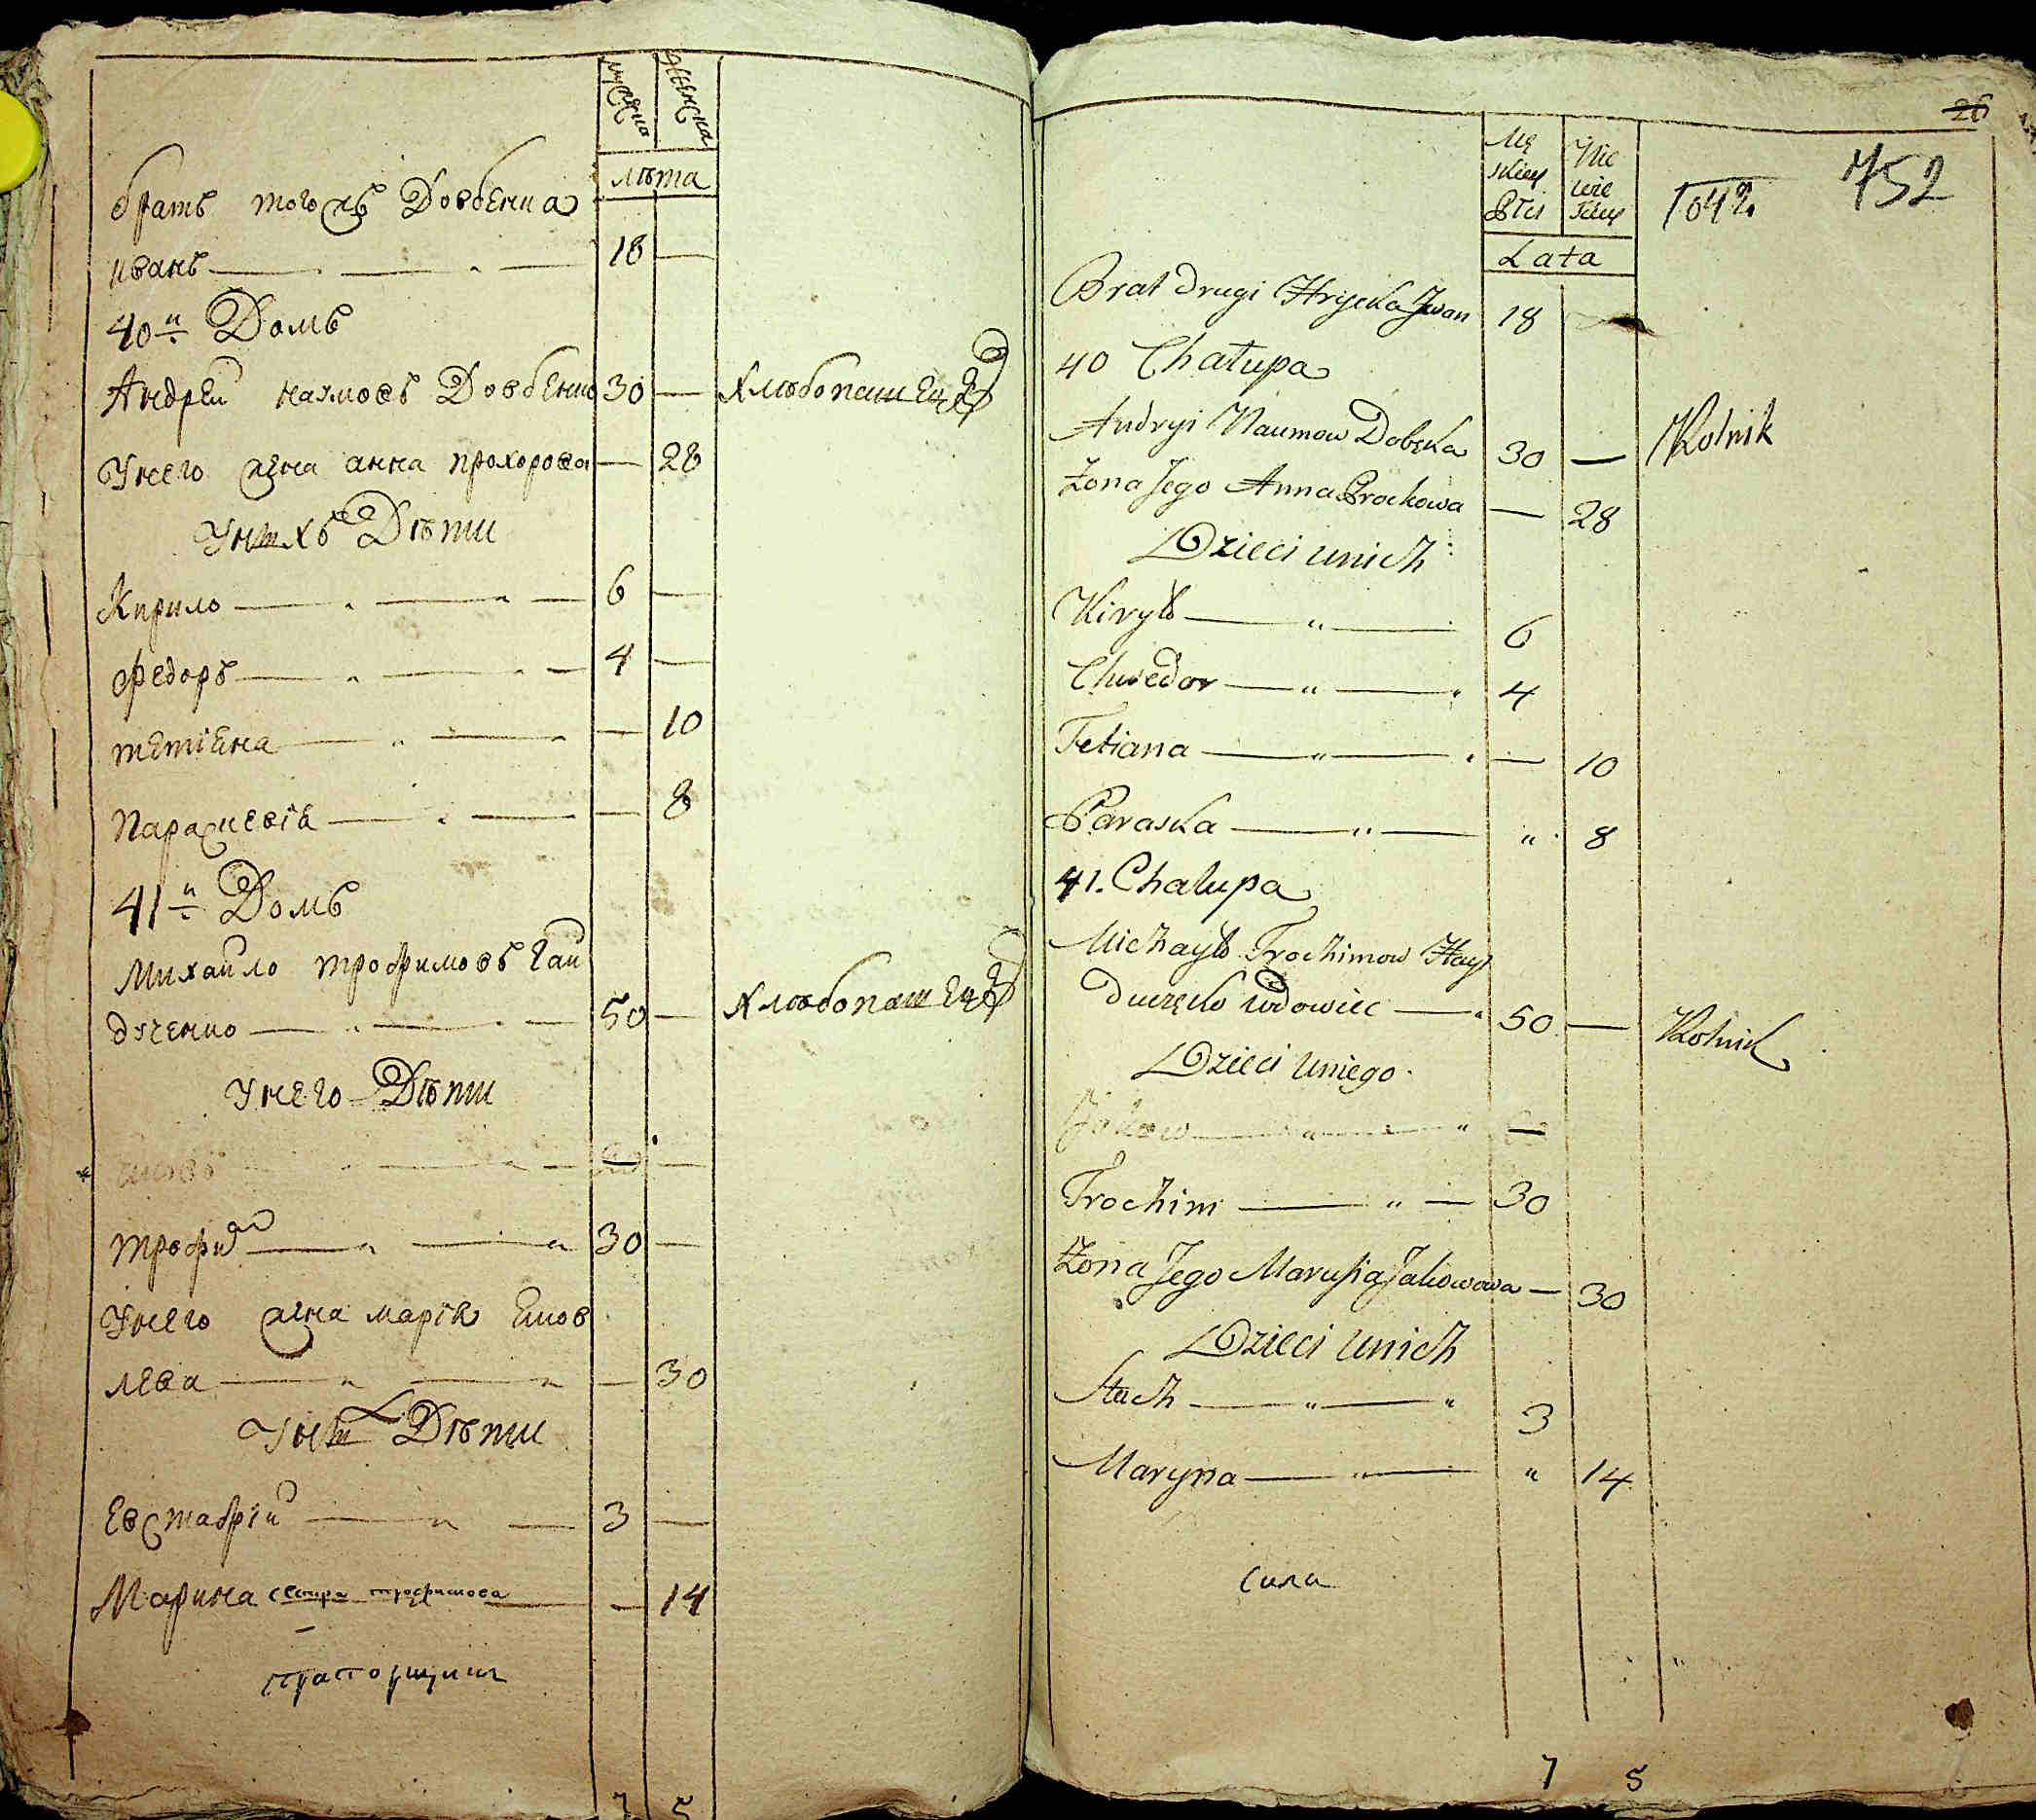 мужеска
женска
лѣта
братъ тогожъ Довбенка
иванъ 18 —
40й Домъ
Андрей наумовъ Довбенко 30 — Хлѣбопашецъ
У него жена анна прохорова — 28
У нихъ Дѣти
Кирило 6 —
Федоръ 4 —
тетіяна — 10
Параскевія — 8
41й Домъ
Михайло трофимовъ Гай
дученко 50 — Хлѣбопашецъ
У него Дѣти
трофим 30 —
У него жена марія Яков
лева — 30
У них Дѣти
Евстафій 3 —
Марина сестра трофимова — 14
прапорщикъ
7 5
26
752
Mę
skiey
Płci
Nie
wie
sciey
Lata
Brat drugi Hrycka Jwan 18 —
40 Chałupa
Andryi Naumow Dobęka 30 — Rolnik
Żona Jego Anna Prochowa — 28
Dzieci unich
Kiryło 6
Chwedor 4
Tetiana — 10
Paraska " 8
41. Chalupa
Michayło Trochimow Hay
duczęko wdowiec 50 — Rolnik
Dzieci uniego
Jakow —
Trochim 30
Żona Jego Marusia Jakowowa — 30
Dzieci unich
Stach 3
Maryna " 14
7 5